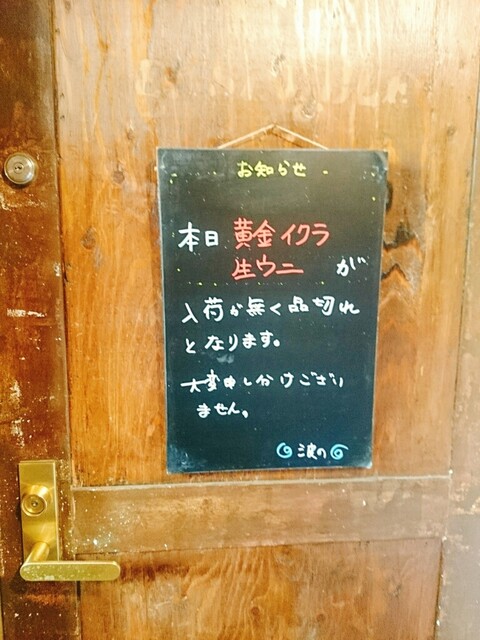 お知らせ
本日 黄金イクラ
生ウニ が
入荷が無く品切れ
となります。
大変申し分けござい
ません。